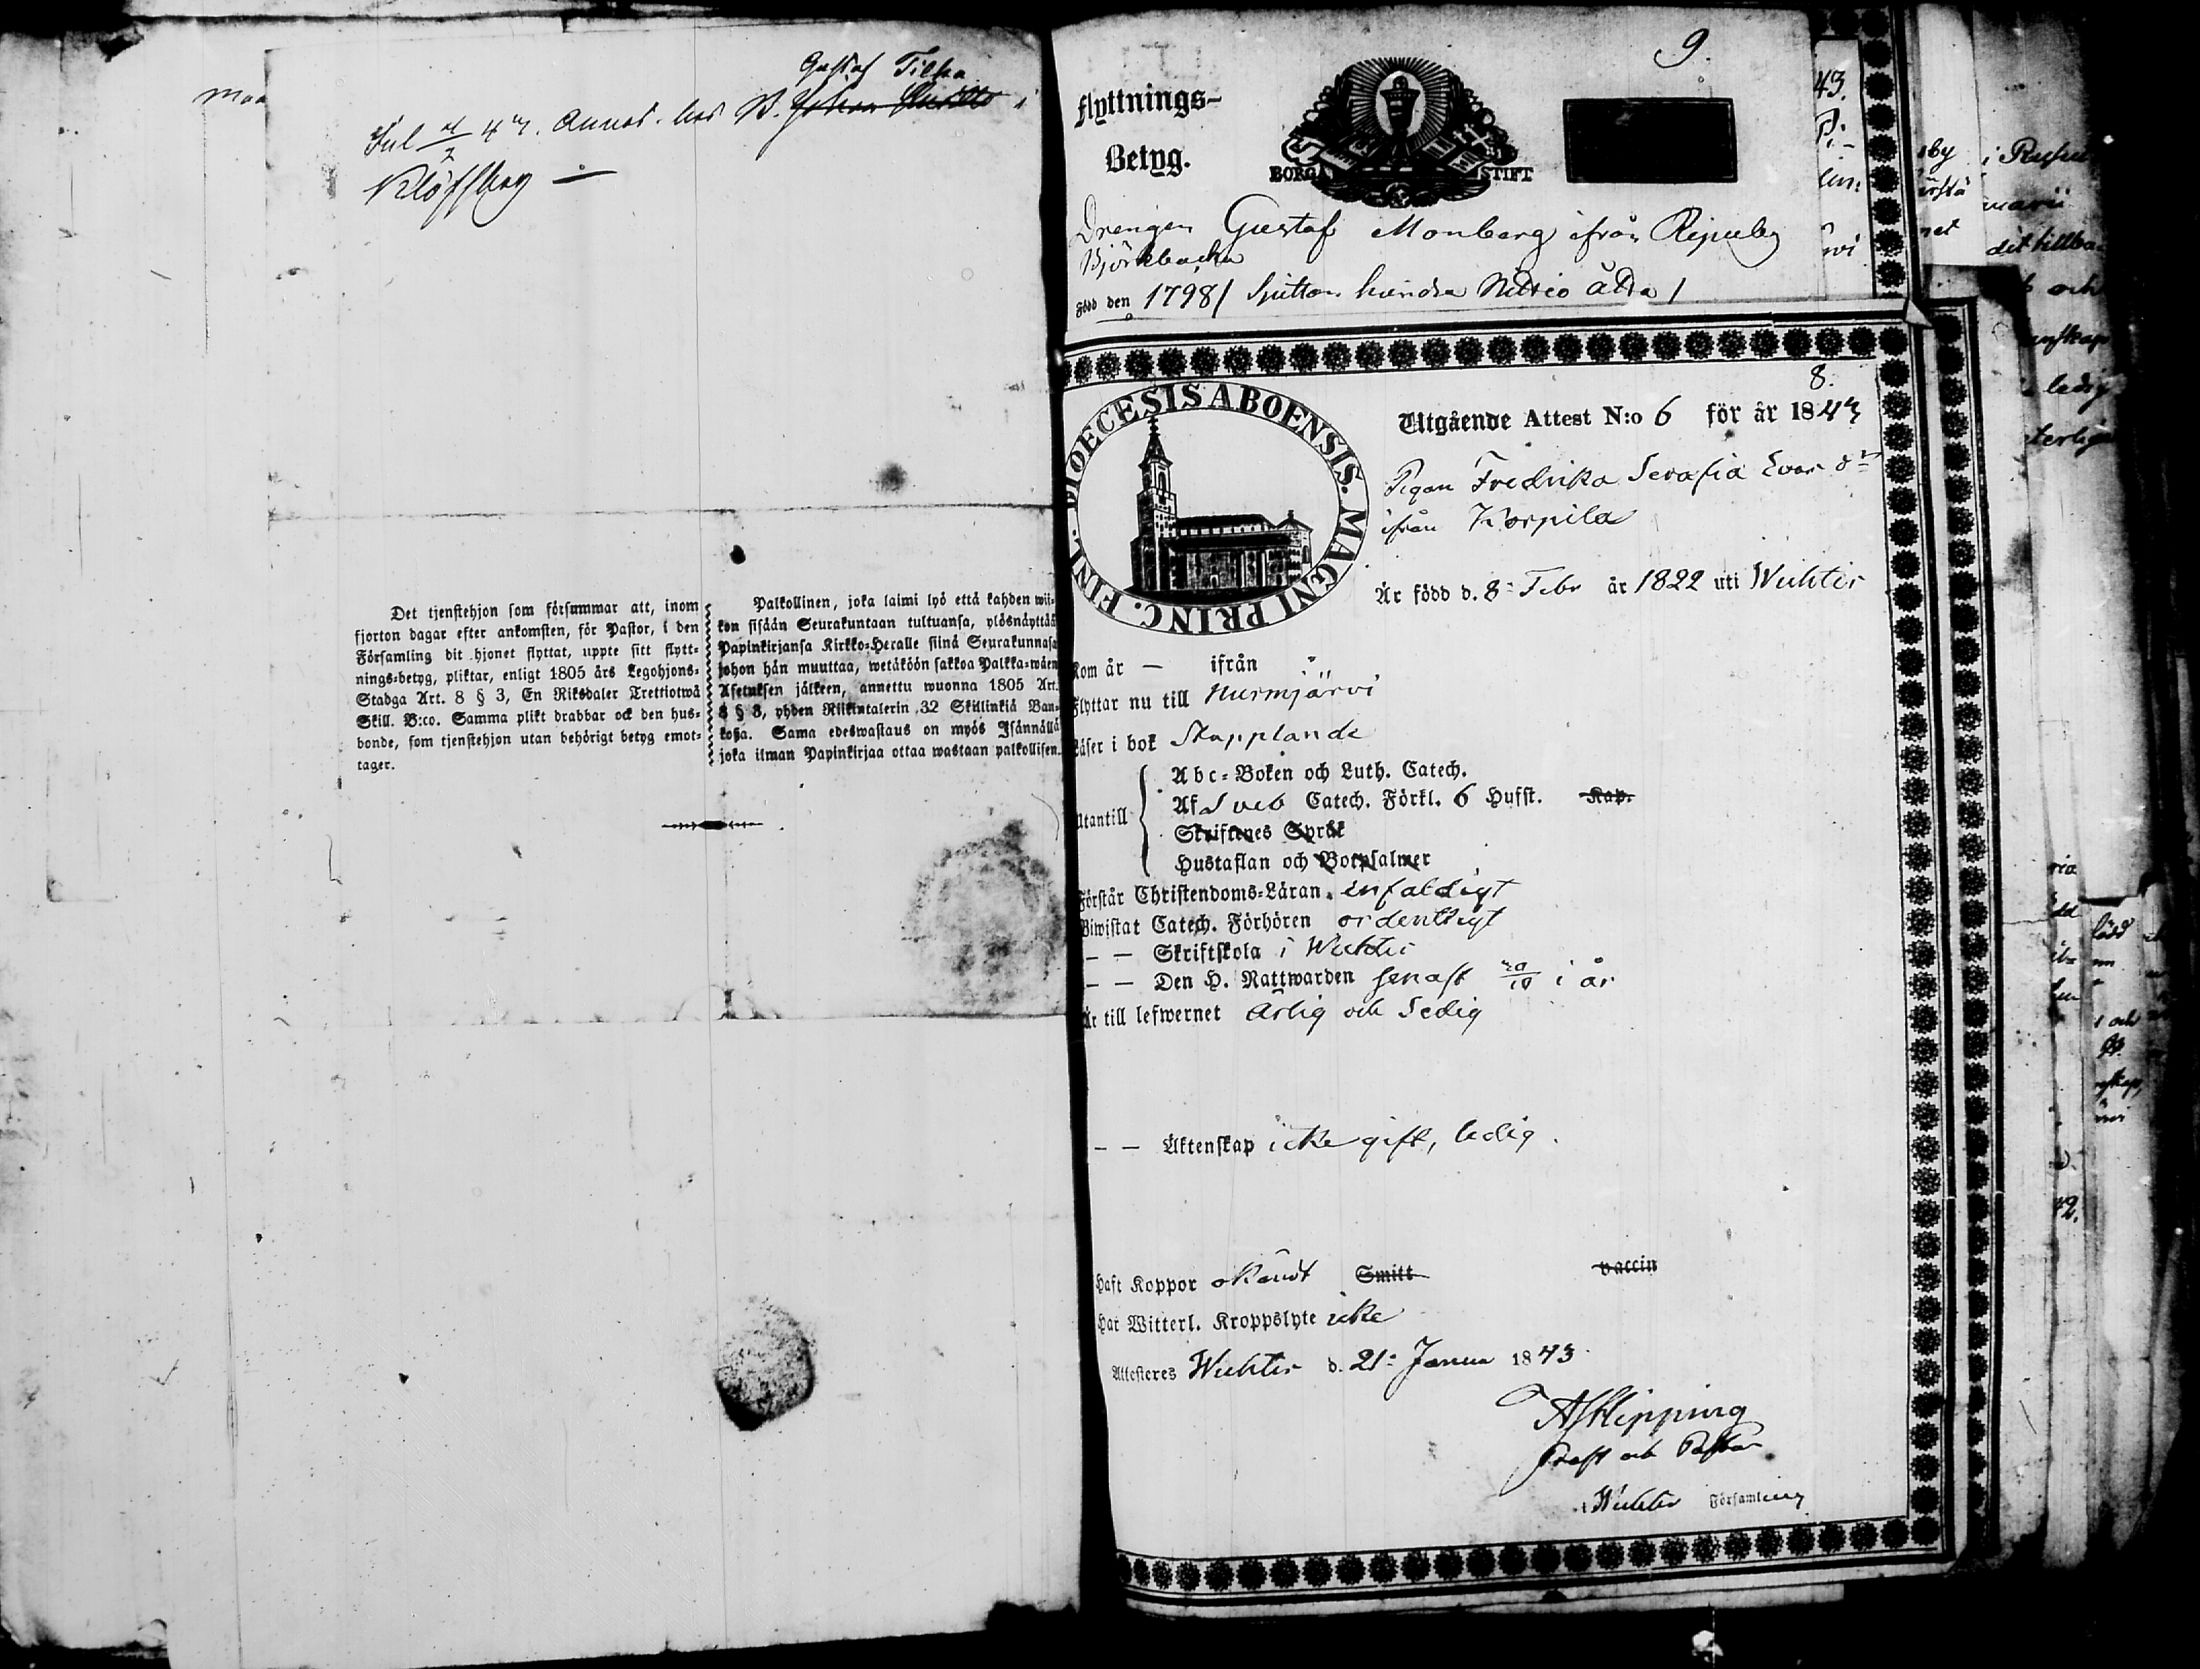 Gustaf Tilka
Jul 2/2 43. Annot. hos B. Johan i
Klöfskog
Det tjenstehjon som försummar att, inom
fjorton dagar efter ankomsten, för Pastor, i den
Församling dit hjonet flyttat, uppte sitt flytt-
nings-betyg, pliktar, enligt 1805 års Legohjons-
Stadga Art. 8 § 3, En Riksdaler Trettiotwå
Skill. B:co. Samma plikt drabbar ock den hus-
bonde, som tjenstehjon utan behörigt betyg emot-
tager.
Palkollinen, joka laimi lyö että kahden wii-
kon sisään Seurakuntaan tultuansa, ylösnäyttää
Papinkirjansa Kirkko-Herralle siinä Seurakunnasa
johon hän muuttaa, wetäköön sakkoa Palkka-wäen
Asetuksen jälkeen, annettu wuonna 1805 Art.
8 § 3, yhden Riikintalerin 32 Skillinkiä Ban-
kosa. Sama edeswastaus on myös Isännällä
joka ilman Papinkirjaa ottaa wastaan palkollisen.
9.
Flyttnings-
Betyg.
BORGÅ STIFT
Drengen Gustaf Monberg ifrån Rejpuby
Björkbacka
Född den 1798 / Sjutton hundra Nittio åtta /
8.
DIOECESIS ABOENSIS. MAGNI PRINC. FINL.
Utgående Attest N:o 6 för år 1843
Pigan Fredrika Serafia Evas dr
ifrån Korpila
Är född d. 8 Febr år 1822 uti Wichtis
Kom år — ifrån
Flyttar nu till Nurmjärvi
Läser i bok Stapplande
Utantill
Abc-Boken och Luth. Catech.
Af Sveb Catech. Förkl. 6 Hufst. Kap.
Skriftenes Språk
Hustaflan och Botpsalmer
Förstår Christendoms-Läran enfaldigt
Biwistat Catech. Förhören ordentligt
— — Skriftskola i Wichtis
— — Den H. Nattwarden senast 20/10 i år
Är till lefwernet ärlig och Sedig
— — Äktenskap icke gift, ledig.
Haft Koppor okändt Smitt vaccin
Har Witterl. Kroppslyte icke
Attesteres Wichtis d. 21 Janua 1843
A J Hipping
Prost och Pastor
i Wichtis Församling